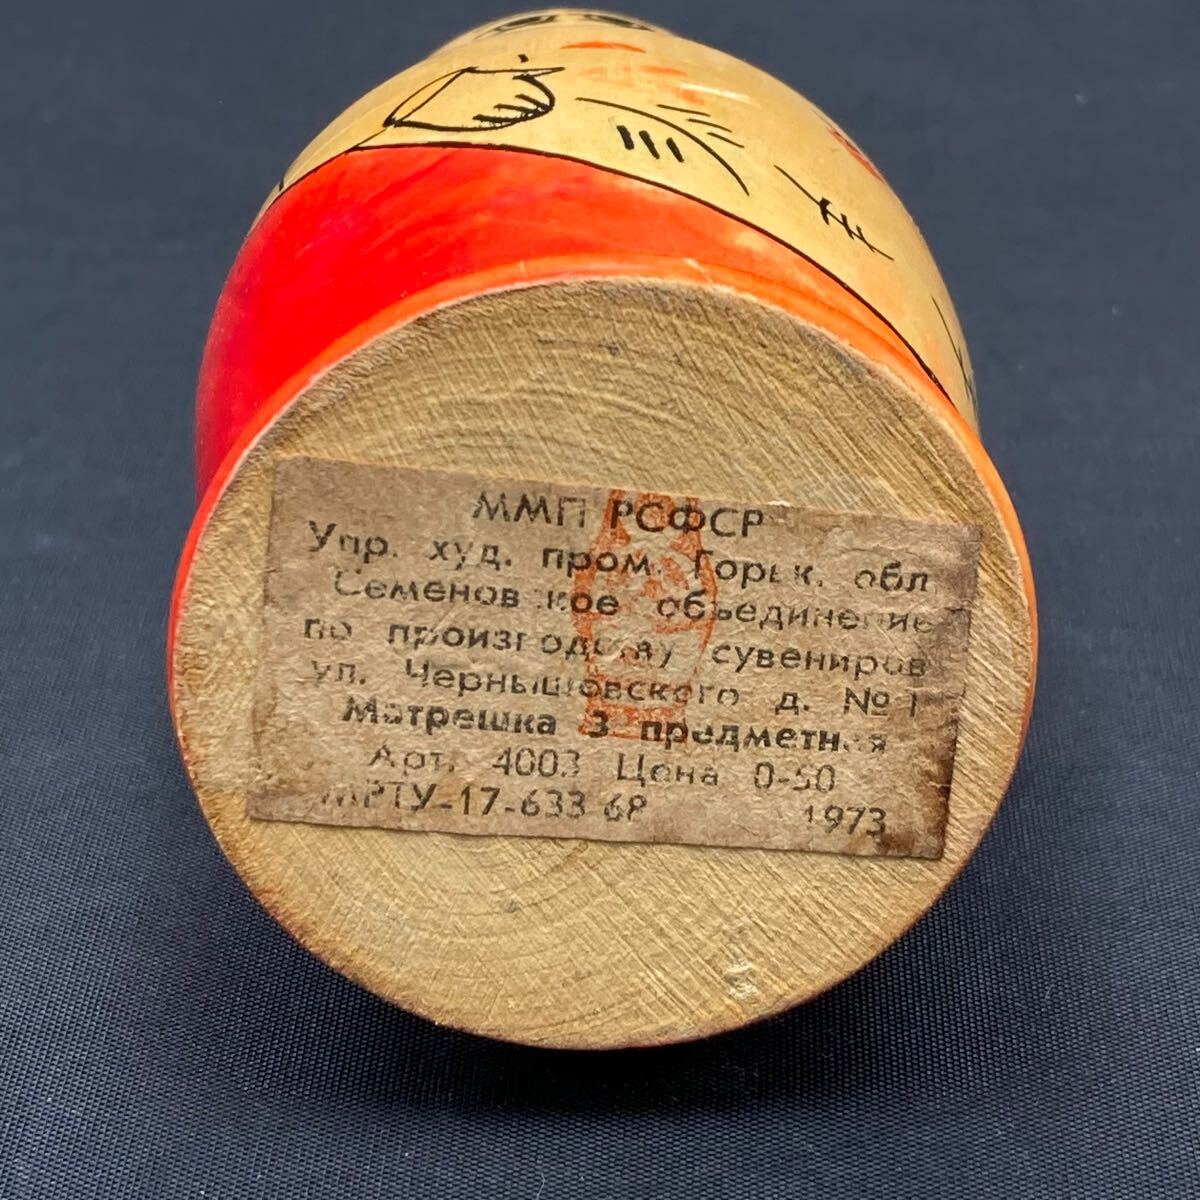 ММП РСФСР
Упр. худ. пром. Горьк. обл.
Семеновское объединение
по производству сувениров
ул. Чернышевского д. № 1
Матрешка 3 предметная
Арт. 4003 Цена 0-50
МРТУ-17-633 68 1973